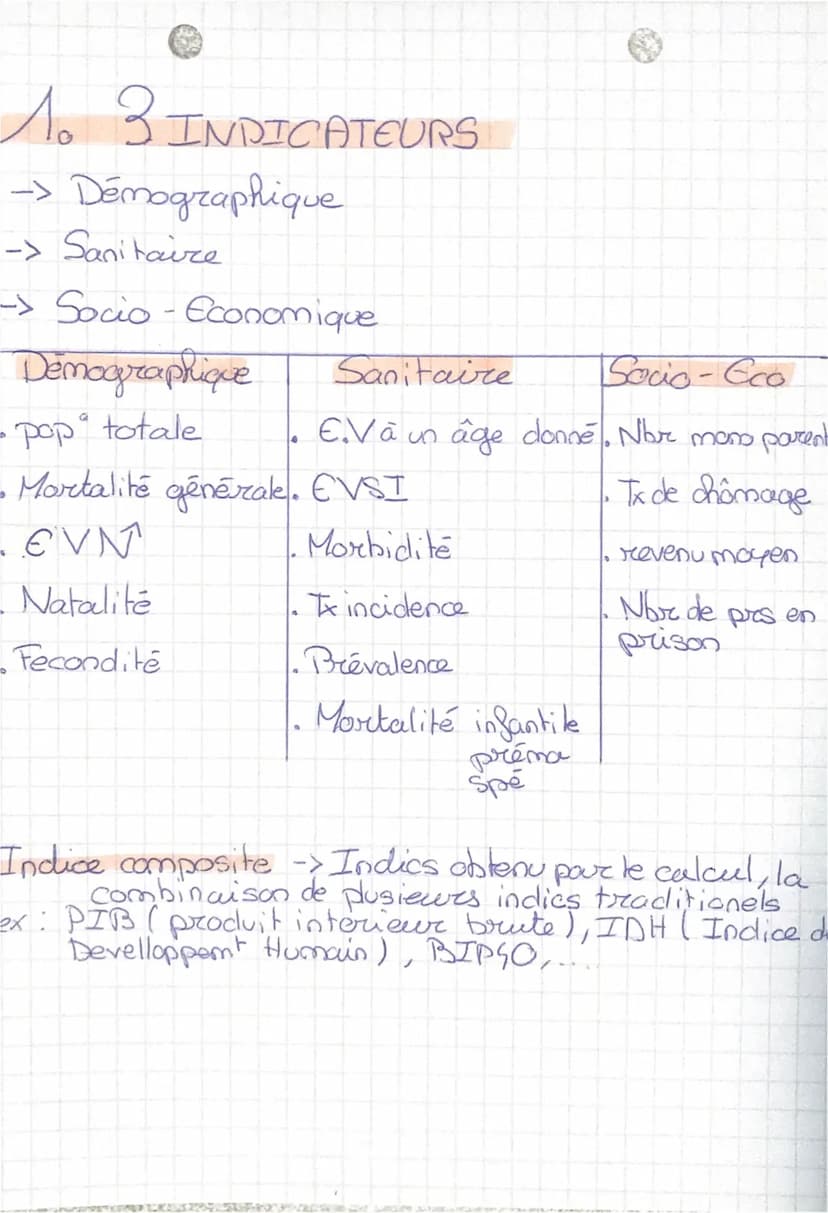 1. 3 INDICATEURS
-> Démographique
-> Sanitaire
-> Socio - Economique
Démographique
. pop° totale
. Mortalité générale
. EVN
. Natalité
. Fecondité
Sanitaire
. E.V à un âge donné
. EVSI
. Morbidité
. Tx incidence
. Prévalence
. Mortalité infantile
préma
spé
Socio - Eco
. Nbr mono parent
. Tx de chômage
. revenu moyen
. Nbr de prs en
prison
Indice composite -> Indics obtenu par le calcul, la
combinaison de plusieurs indics traditionels
ex : PIB ( produit interieur brute ), IDH ( Indice de
Developpemt Humain ), BIP40,...